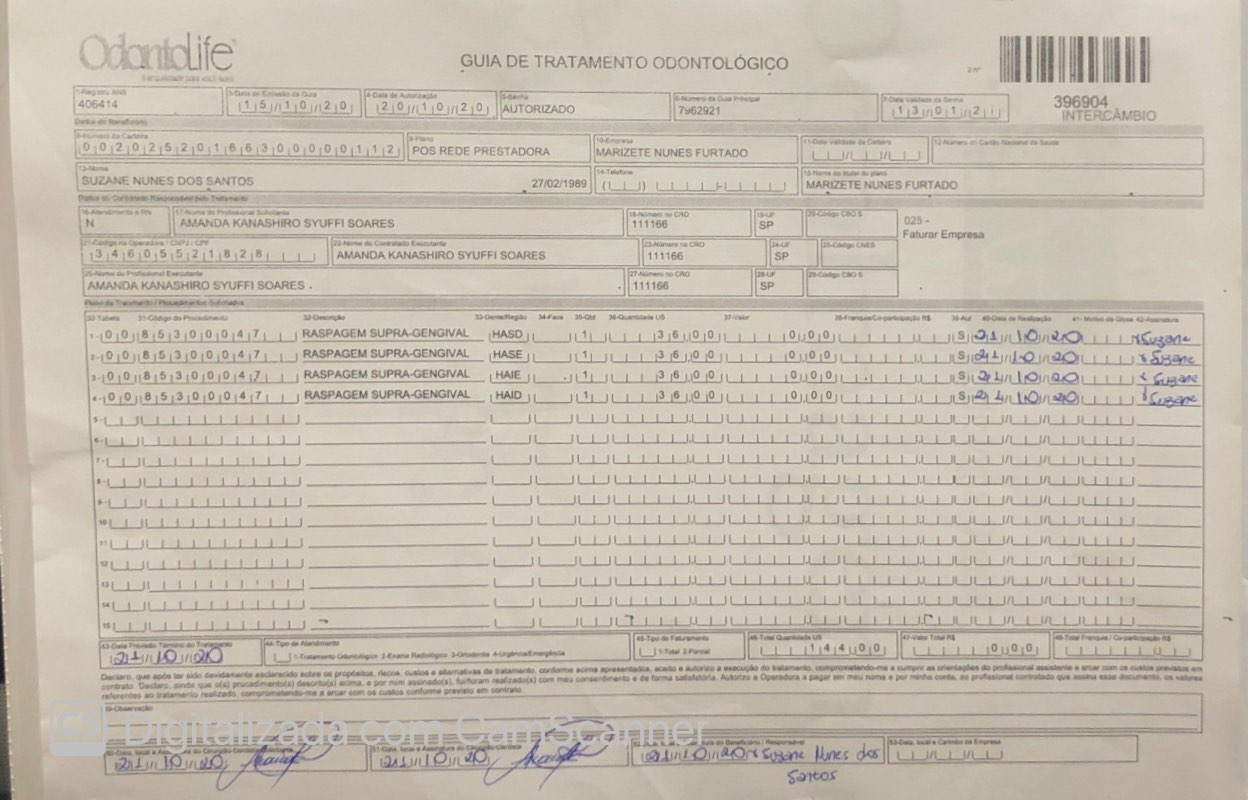 OdontoLife
GUIA DE TRATAMENTO ODONTOLÓGICO
2-Nº
396904
INTERCÂMBIO
1-Registro ANS
406414
3-Data de Emissão da Guia
15/10/20
4-Data de Autorização
20/10/20
5-Senha
AUTORIZADO
6-Número da Guia Principal
7962921
7-Data Validade da Senha
13/01/21
Dados do Beneficiário
8-Número da Carteira
00202520166300000112
9-Plano
POS REDE PRESTADORA
10-Empresa
MARIZETE NUNES FURTADO
11-Data Validade da Carteira
12-Número do Cartão Nacional de Saúde
13-Nome
SUZANE NUNES DOS SANTOS 27/02/1989
14-Telefone
15-Nome do titular do plano
MARIZETE NUNES FURTADO
Dados do Contratado Responsável pelo Tratamento
16-Atendimento a RN
N
17-Nome do Profissional Solicitante
AMANDA KANASHIRO SYUFFI SOARES
18-Número no CRO
111166
19-UF
SP
20-Código CBO S
025 -
Faturar Empresa
21-Código na Operadora / CNPJ / CPF
34605521828
22-Nome do Contratado Executante
AMANDA KANASHIRO SYUFFI SOARES
23-Número no CRO
111166
24-UF
SP
25-Código CNES
26-Nome do Profissional Executante
AMANDA KANASHIRO SYUFFI SOARES
27-Número no CRO
111166
28-UF
SP
29-Código CBO S
Plano de Tratamento / Procedimentos Solicitados
30-Tabela 31-Código do Procedimento 32-Descrição 33-Dente/Região 34-Face 35-Qtd 36-Quantidade US 37-Valor 38-Franquia/Co-participação R$ 39-Aut 40-Data de Realização 41- Motivo da Glosa 42-Assinatura
1- 00 85300047 RASPAGEM SUPRA-GENGIVAL HASD 1 36 00 0 00 S 21/10/20 Suzane
2- 00 85300047 RASPAGEM SUPRA-GENGIVAL HASE 1 36 00 0 00 S 21/10/20 Suzane
3- 00 85300047 RASPAGEM SUPRA-GENGIVAL HAIE 1 36 00 0 00 S 21/10/20 Suzane
4- 00 85300047 RASPAGEM SUPRA-GENGIVAL HAID 1 36 00 0 00 S 21/10/20 Suzane
5-
6-
7-
8-
9-
10
11
12
13
14
15
43-Data Previsão Término do Tratamento
21/10/20
44-Tipo de Atendimento
1-Tratamento Odontológico 2-Exame Radiológico 3-Ortodontia 4-Urgência/Emergência
45-Tipo de Faturamento
1-Total 2-Parcial
46-Total Quantidade US
144 00
47-Valor Total R$
0 00
48-Total Franquia / Co-participação R$
Declaro, que após ter sido devidamente esclarecido sobre os propósitos, riscos, custos e alternativas de tratamento, conforme acima apresentados, aceito e autorizo a execução do tratamento, comprometendo-me a cumprir as orientações do profissional assistente e arcar com os custos previstos em
contrato. Declaro, ainda que o(s) procedimento(s) descrito(s) acima, e por mim assinado(s), foi/foram realizado(s) com meu consentimento e de forma satisfatória. Autorizo a Operadora a pagar em meu nome e por minha conta, ao profissional contratado que assina esse documento, os valores
referentes ao tratamento realizado, comprometendo-me a arcar com os custos conforme previsto em contrato.
49-Observação
CS Digitalizada com CamScanner
50-Data, local e Assinatura do Cirurgião-Dentista Solicitante
21/10/20
51-Data, local e Assinatura do Cirurgião-Dentista
21/10/20
21/10/20 Suzane Nunes dos
Santos
53-Data, local e Carimbo da Empresa